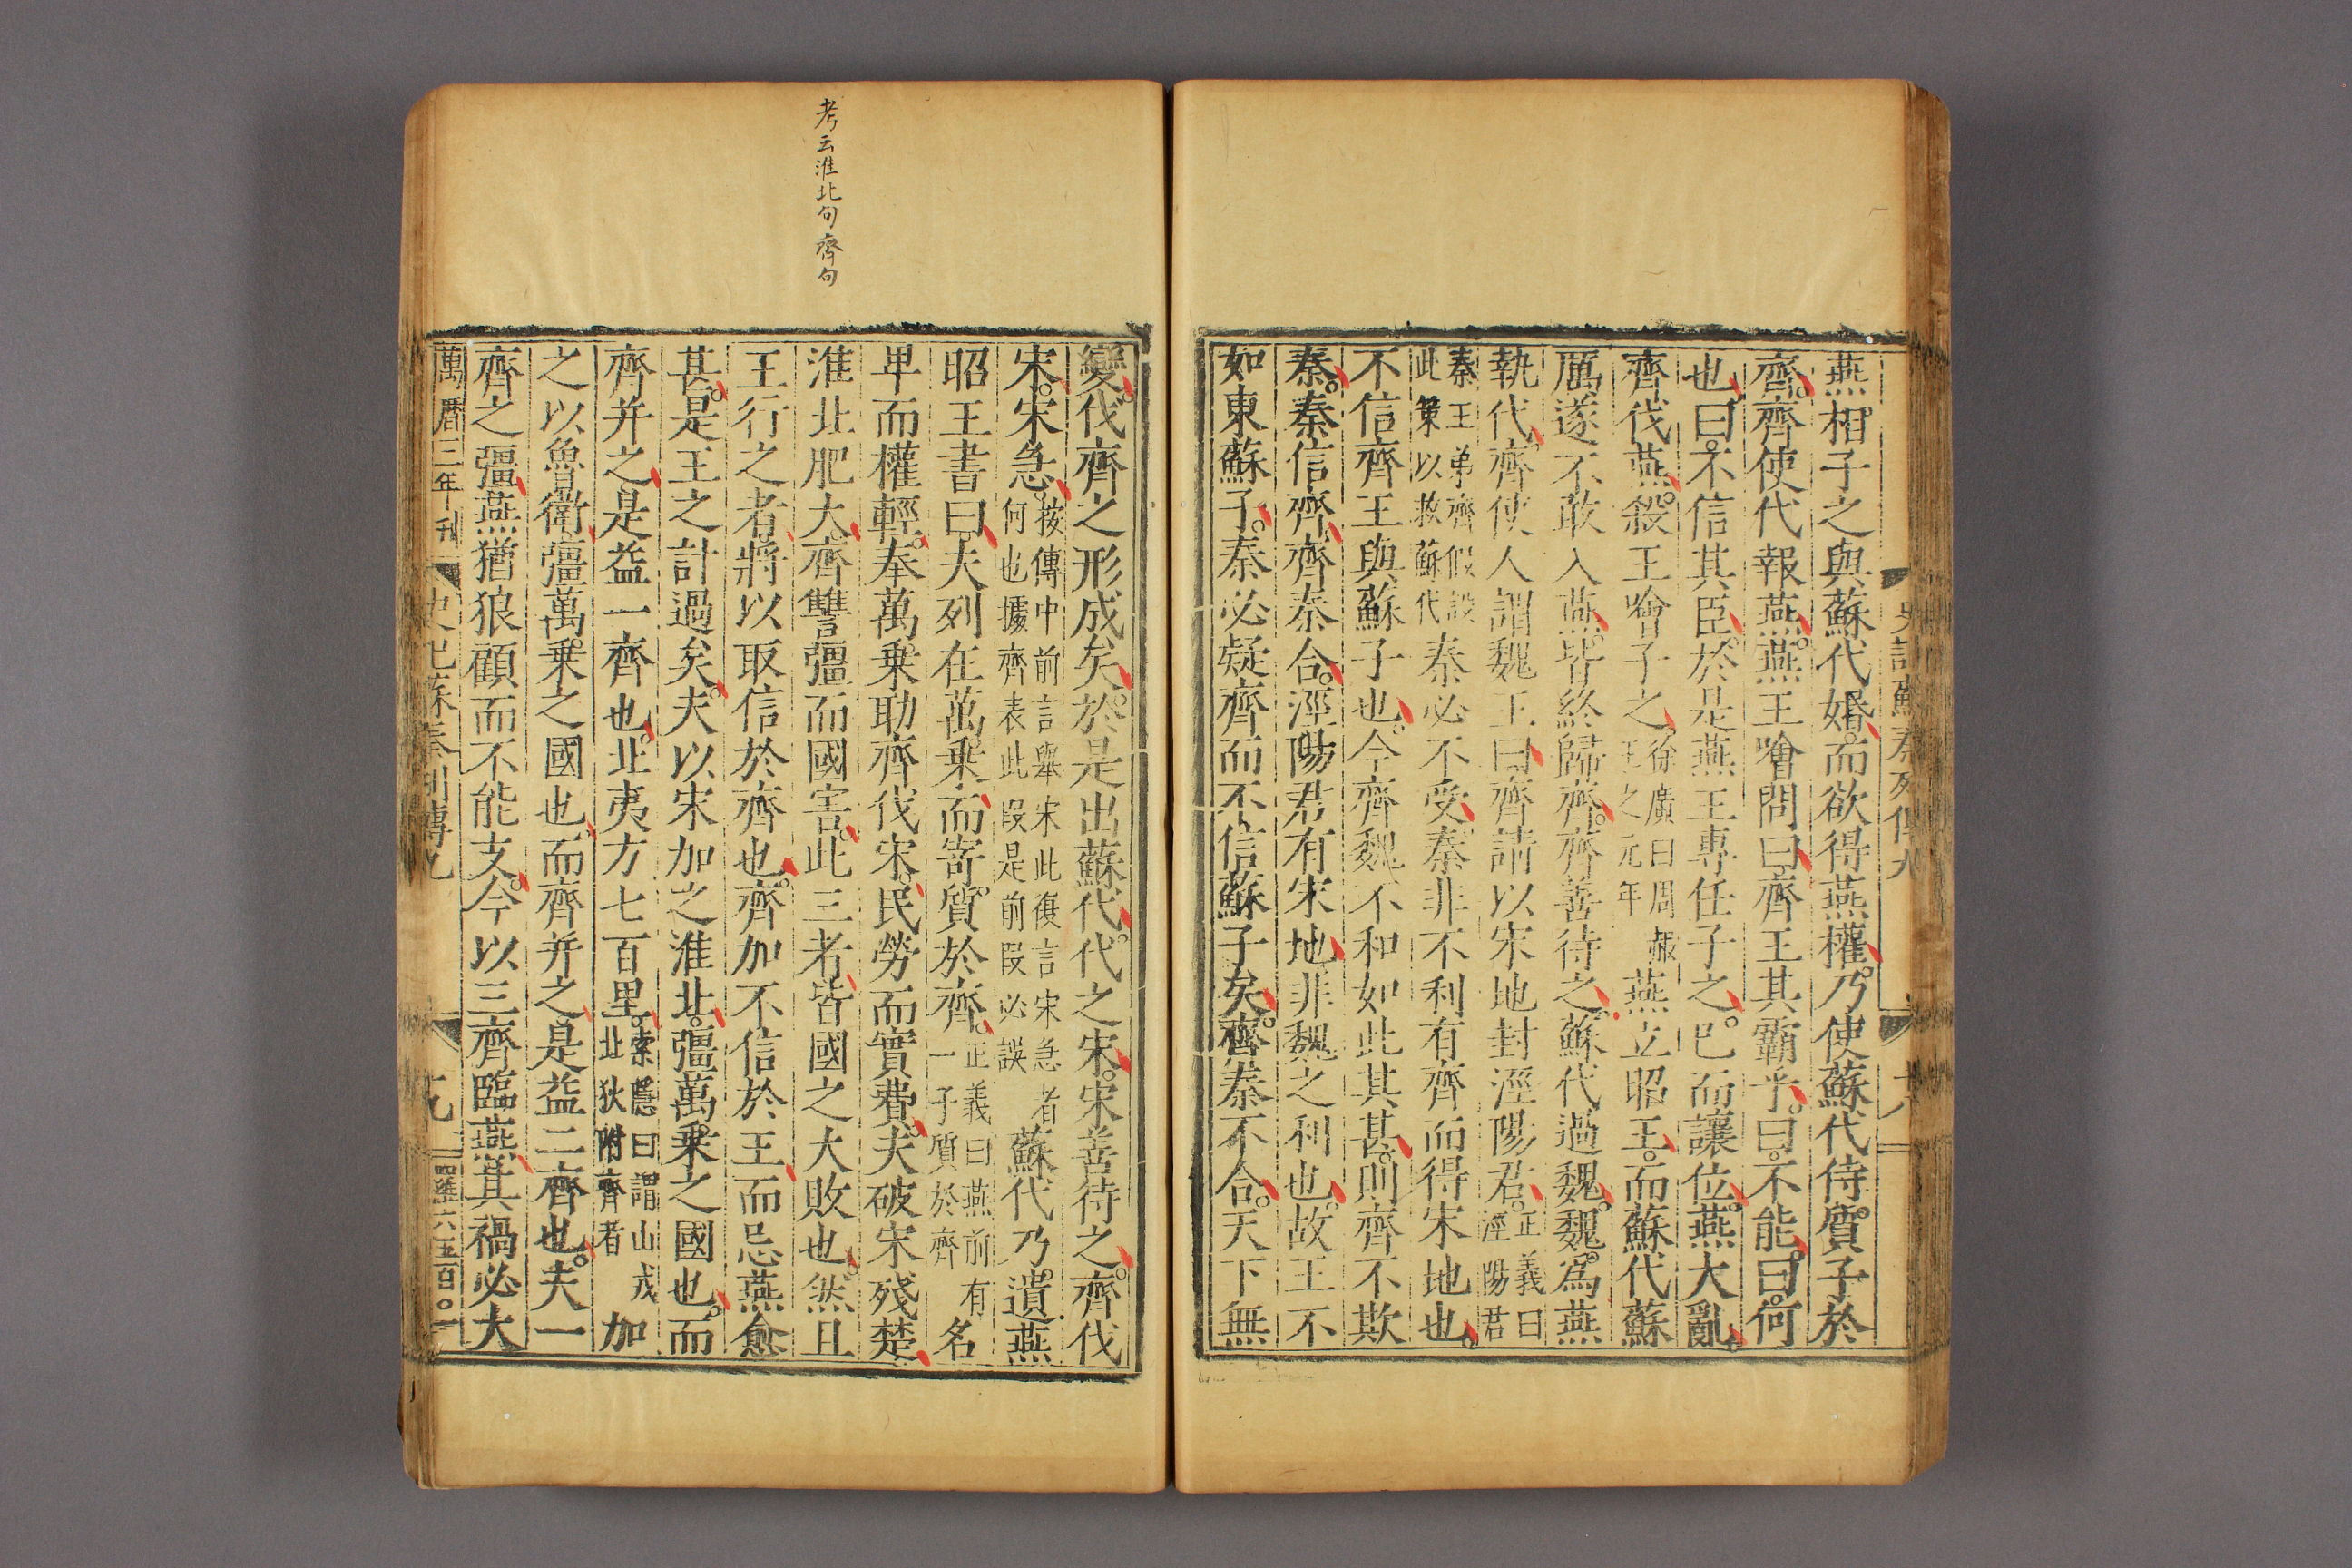 史記蘇秦列傳九
十八
燕相子之與蘇代婚而欲得燕權乃使蘇代侍質子於
齊齊使代報燕燕王噲問曰齊王其霸乎曰不能曰何
也曰不信其臣於是燕王專任子之已而讓位燕大亂
齊伐燕殺王噲子之徐廣曰周赧王之元年燕立昭王而蘇代蘇
厲遂不敢入燕皆終歸齊齊善待之蘇代過魏魏爲燕
執代齊使人謂魏王曰齊請以宋地封涇陽君正義曰涇陽君
秦王弟齊假設此策以救蘇代秦必不受秦非不利有齊而得宋地也
不信齊王與蘇子也今齊魏不和如此其甚則齊不欺
秦秦信齊齊秦合涇陽君有宋地非魏之利也故王不
如東蘇子秦必疑齊而不信蘇子矣齊秦不合天下無
考云淮北句齊句
變伐齊之形成矣於是出蘇代代之宋宋善待之齊伐
宋宋急按傳中前言舉宋此復言宋急者何也據齊表此叚是前叚必誤蘇代乃遺燕
昭王書曰夫列在萬乗而寄質於齊正義曰燕前有一子質於齊名
卑而權輕奉萬乗助齊伐宋民勞而實費夫破宋殘楚
淮北肥大齊讐彊而國害此三者皆國之大敗也然且
王行之者將以取信於齊也齊加不信於王而忌燕愈
甚是王之計過矣夫以宋加之淮北彊萬乗之國也而
齊并之是益一齊也北夷方七百里索隱曰謂山戎北狄附齊者加
之以魯衛彊萬乗之國也而齊并之是益二齊也夫一
齊之彊燕猶狼顧而不能支今以三齊臨燕其禍必大
萬曆三年刊
史記蘇秦列傳九
十九
羅六五百〇一